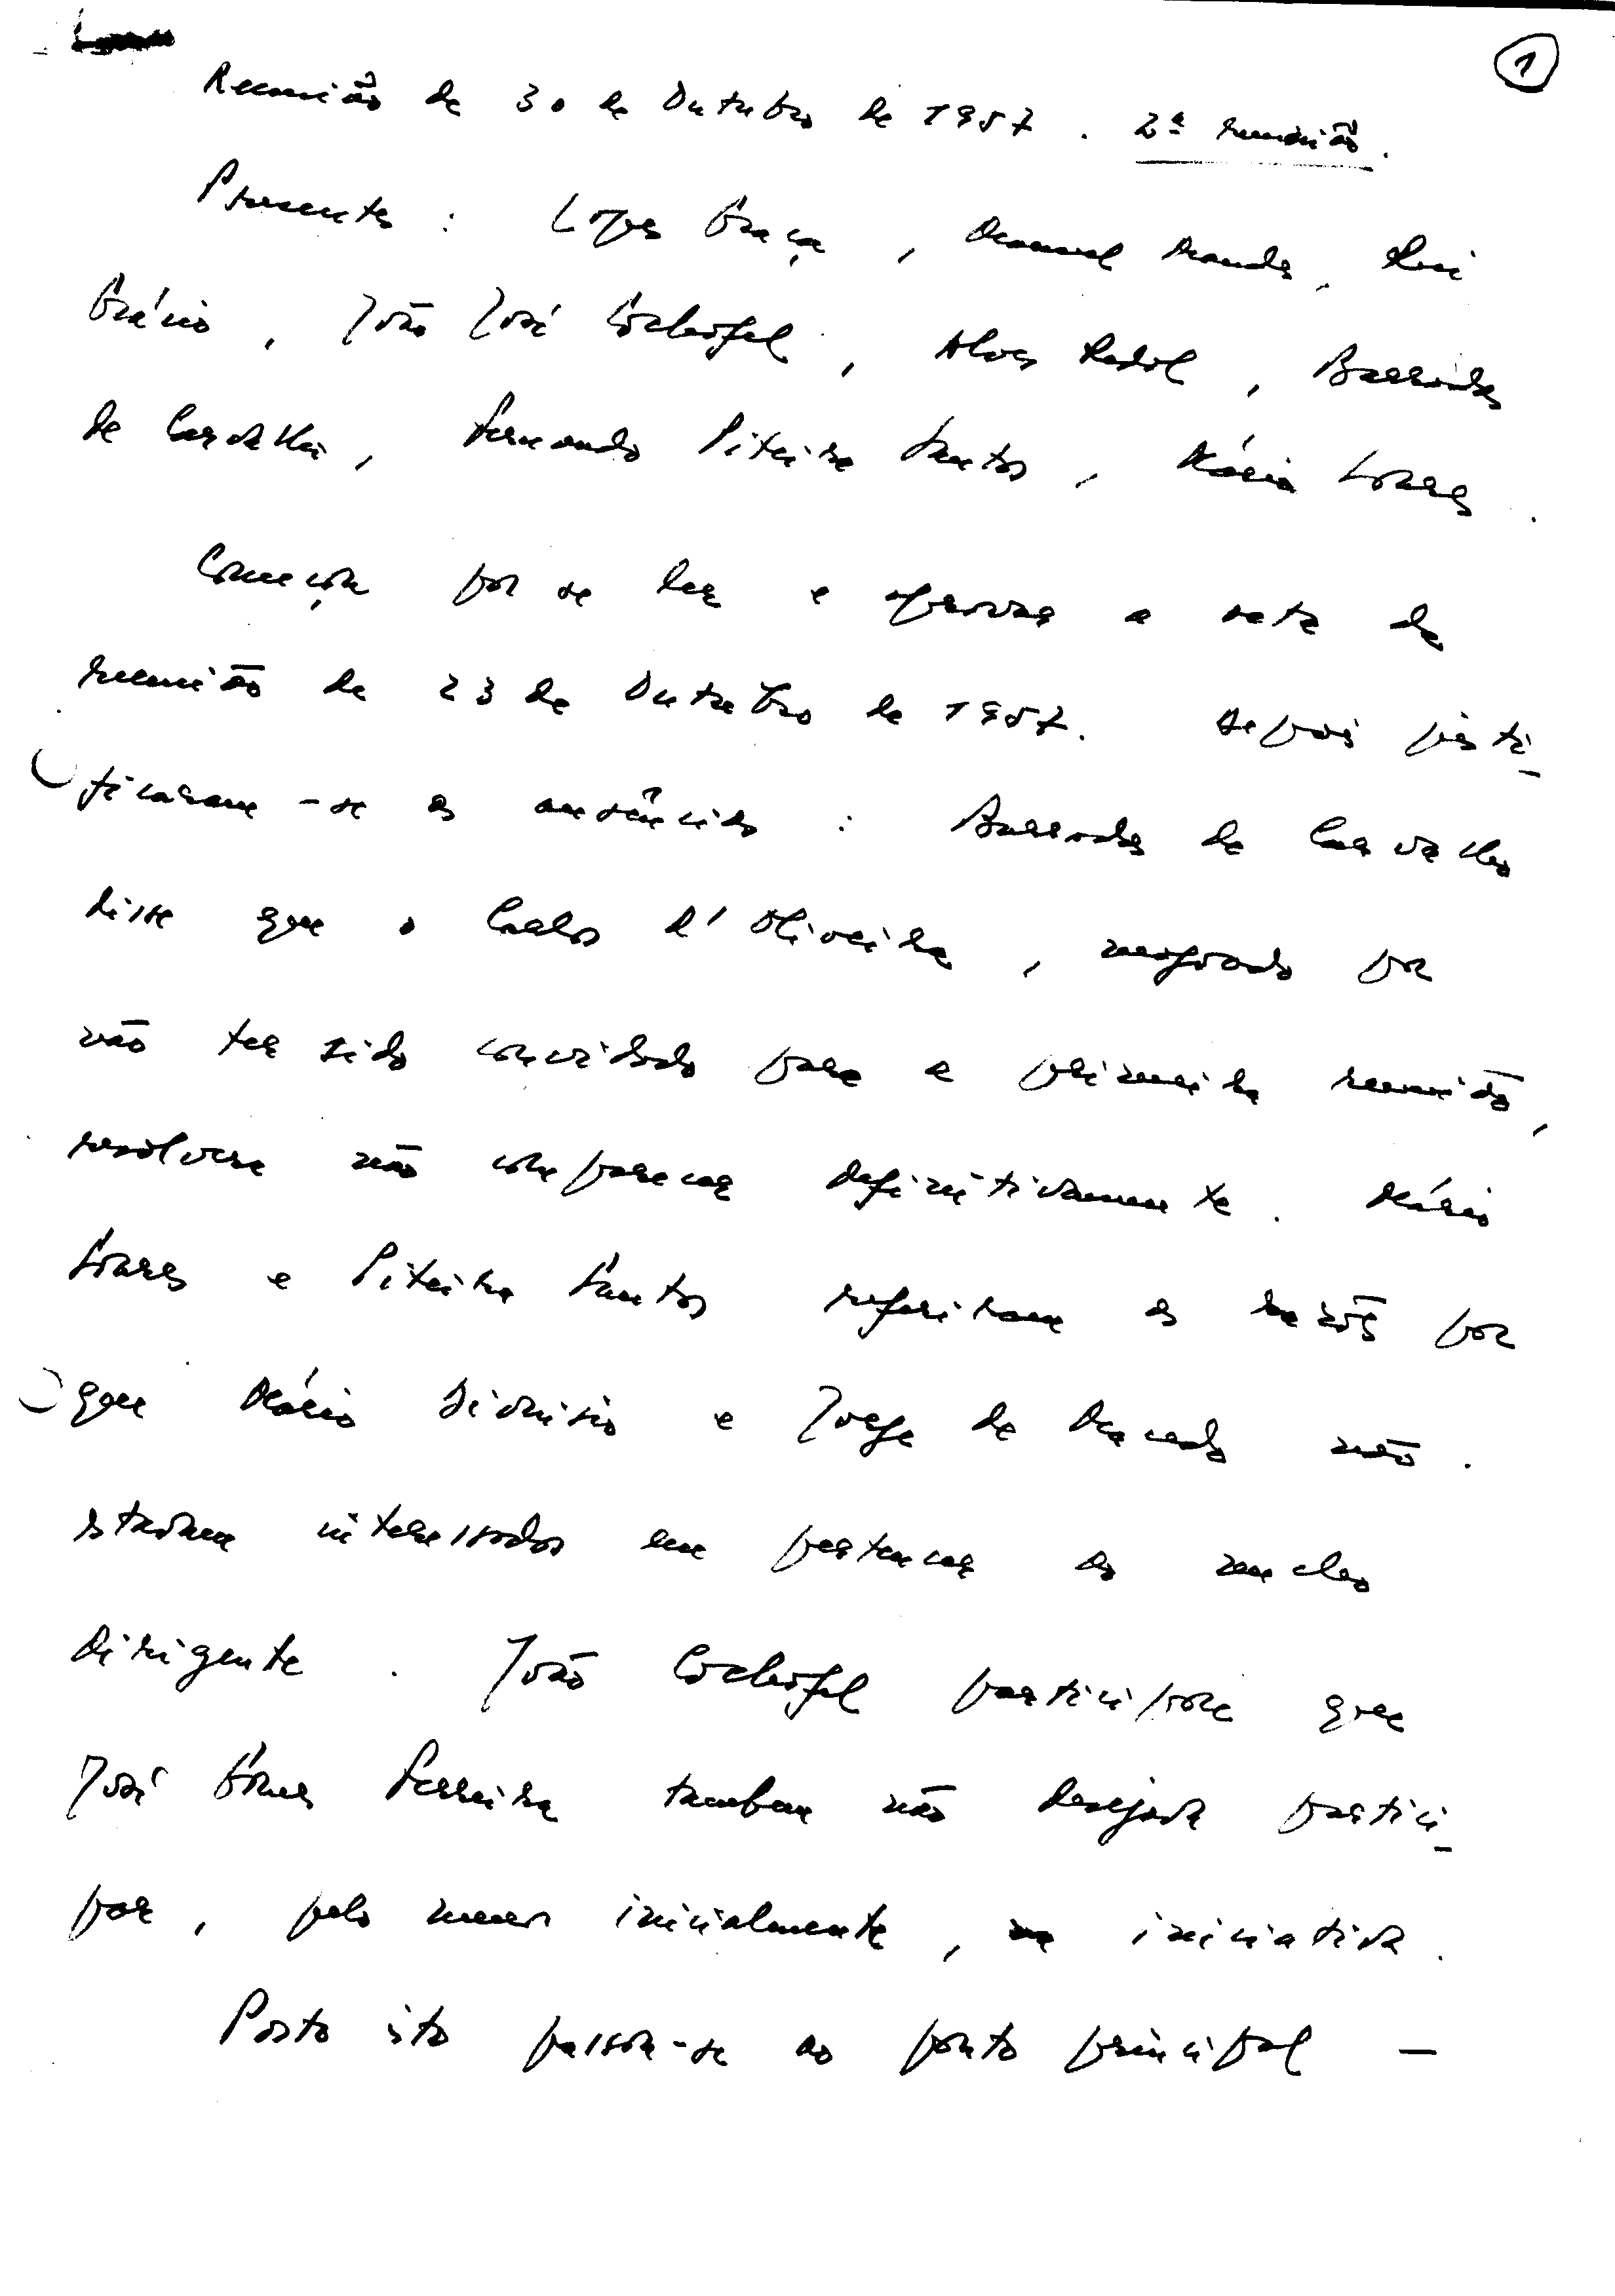 1
Reunião de 30 de Outubro de 1957. 2ª reunião.
Presentes: Lopes Graça, Manuel Mendes, Rui
Grácio, João José Cochofel, Alves Redol, Barradas
de Carvalho, Fernando Piteira Santos, Mário Soares.
Começou por se ler e aprovar a acta da
reunião de 23 de Outubro de 1957. Depois justi-
ficaram-se as ausências: Barradas de Carvalho
disse que o Carlos d'Oliveira, magoado por
não ter sido convidado para a primeira reunião,
resolvera não comparecer definitivamente. Mário
Soares e Piteira Santos referiram as razões por
que Mário Dionísio e Jorge de Macedo não
estavam interessados em pertencer ao nucleo
dirigente. João Cochofel participou que
José Gomes Ferreira tambem não desejava partici-
par, pelo menos inicialmente, na iniciativa.
Posto isto passou-se ao ponto principal —